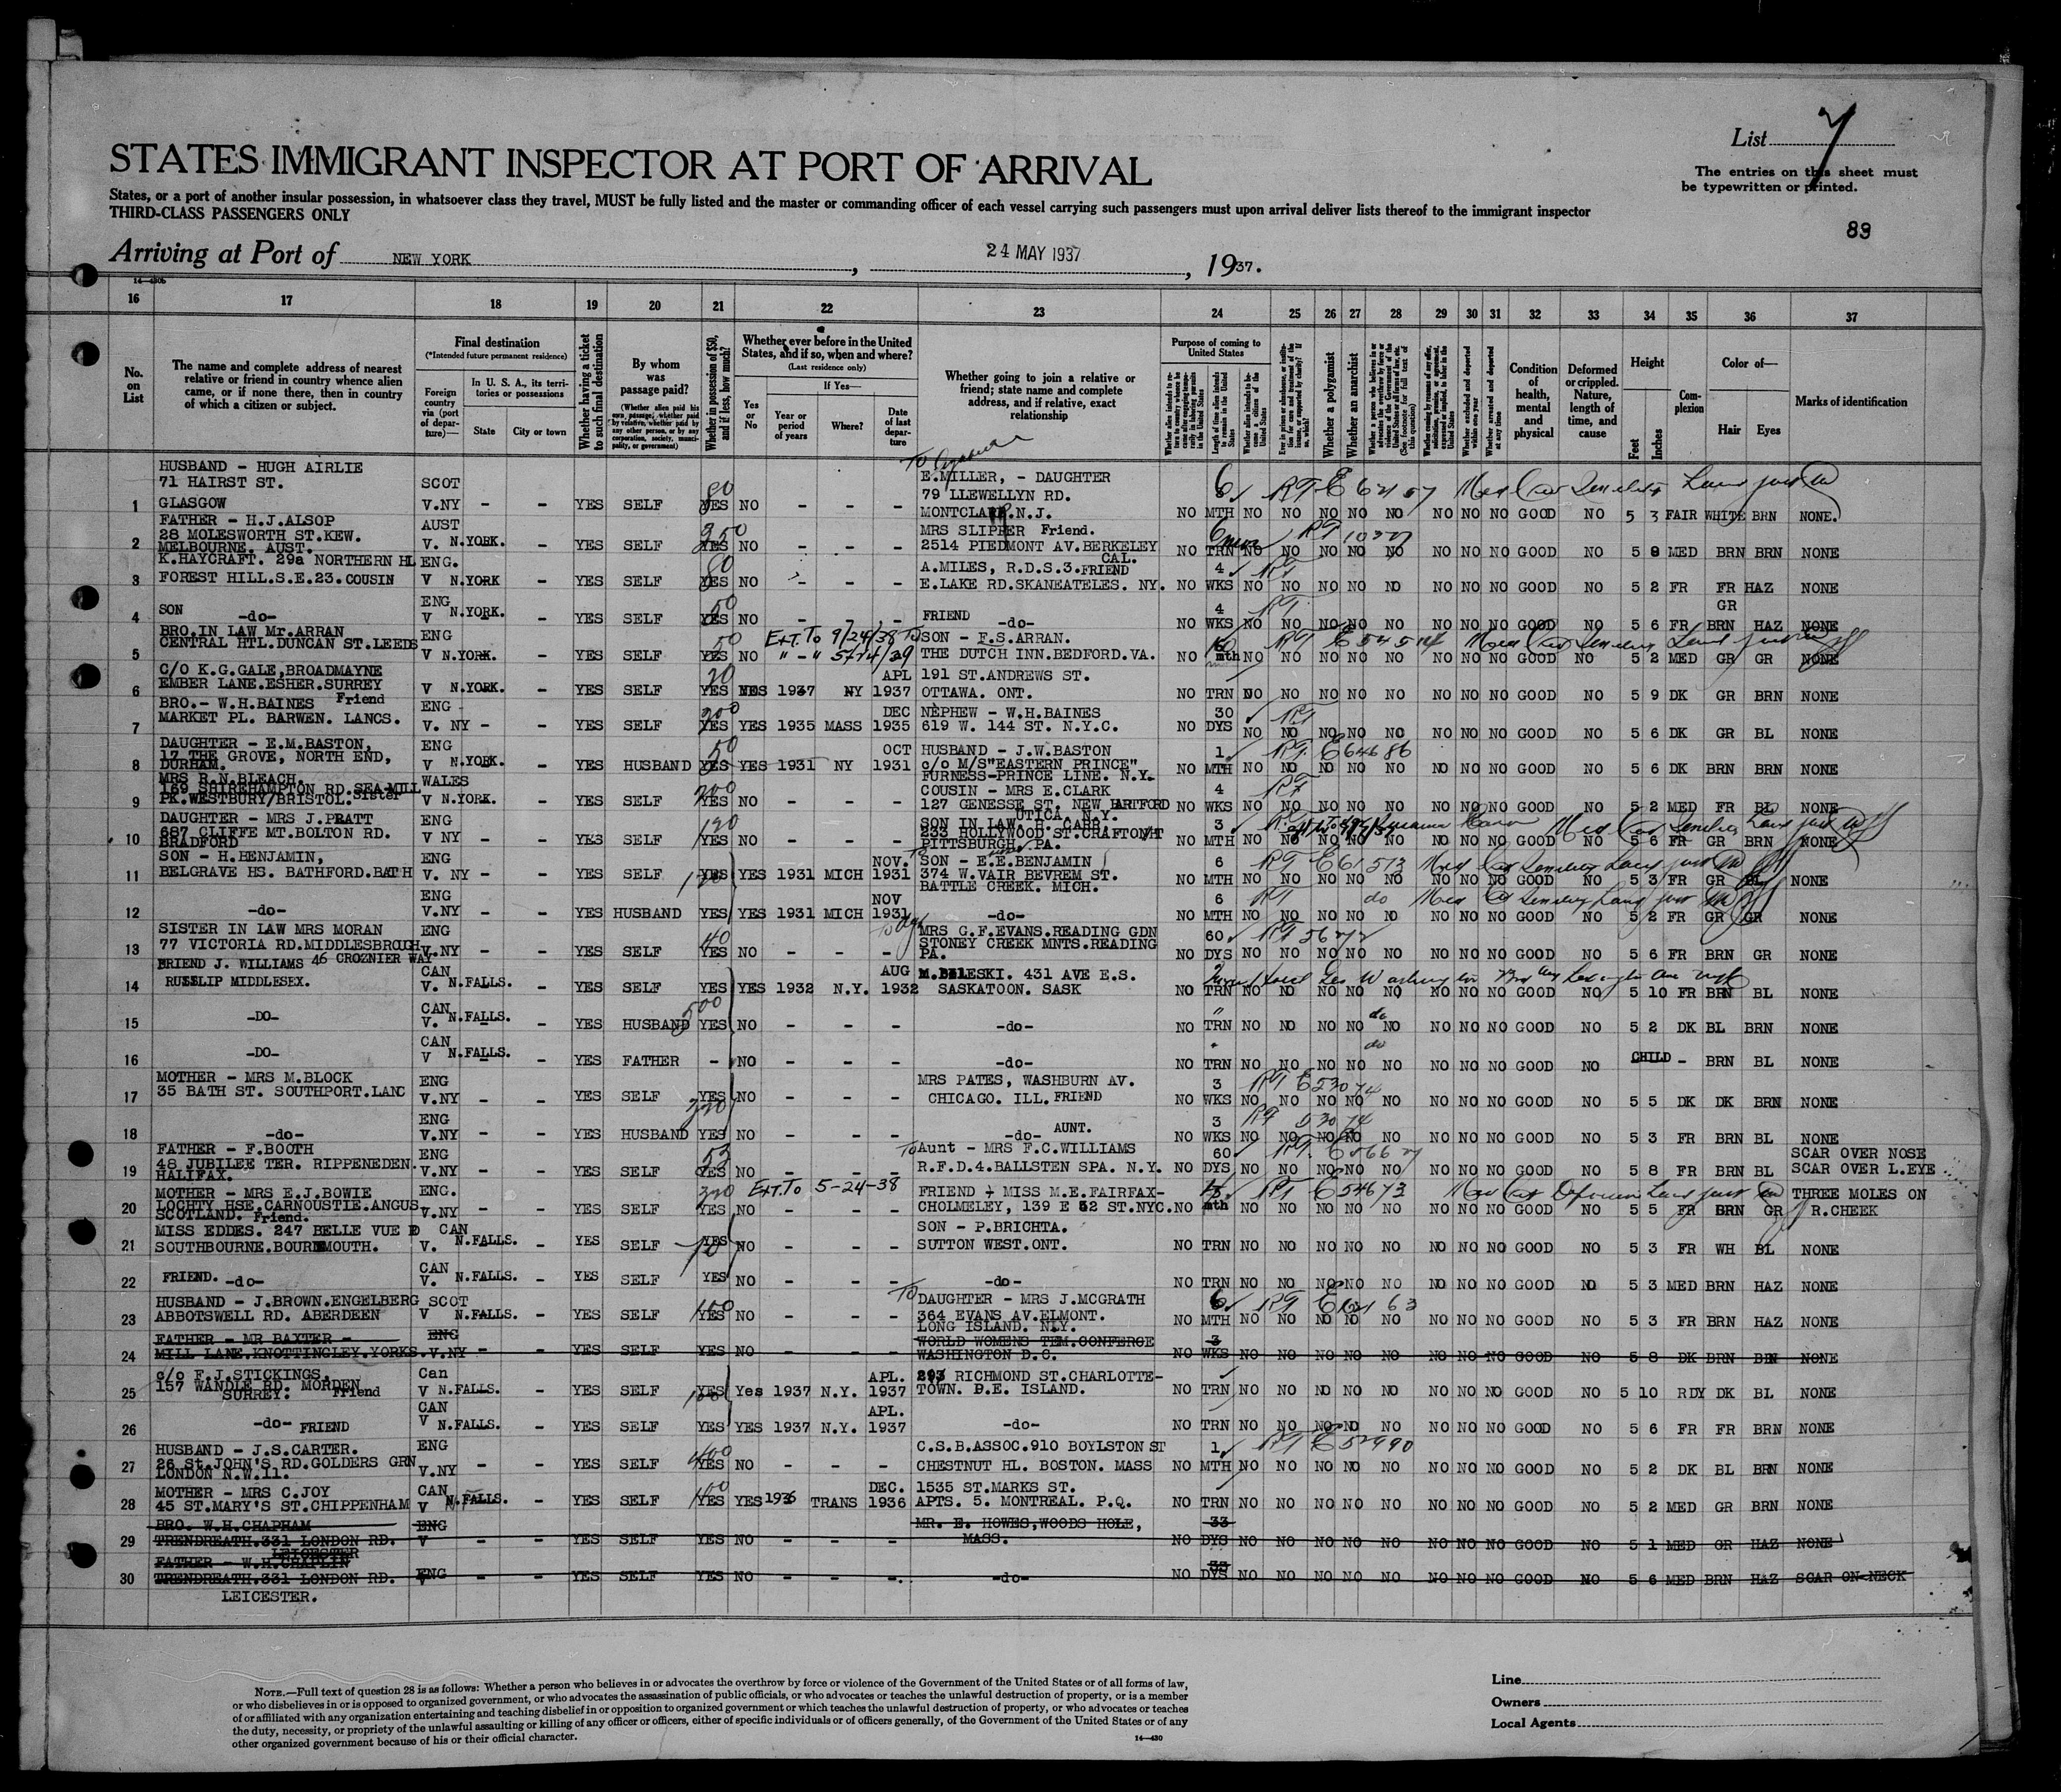 List 7
STATES IMMIGRANT INSPECTOR AT PORT OF ARRIVAL
The entries on this sheet must
be typewritten or printed.
States, or a port of another insular possession, in whatsoever class they travel, MUST be fully listed and the master or commanding officer of each vessel carrying such passengers must upon arrival deliver lists thereof to the immigrant inspector
THIRD-CLASS PASSENGERS ONLY
83
Arriving at Port of NEW YORK, 24 MAY 1937, 1937.
14—430b
16 17 18 19 20 21 22 23 24 25 26 27 28 29 30 31 32 33 34 35 36 37
No. on List
The name and complete address of nearest relative or friend in country whence alien came, or if none there, then in country of which a citizen or subject.
Final destination
(*Intended future permanent residence)
Foreign country via (port of departure)—
In U. S. A., its territories or possessions
State
City or town
Whether having a ticket to such final destination
By whom was passage paid?
(Whether alien paid his own passage, whether paid by relative, whether paid by any other person, or by any corporation, society, municipality, or government)
Whether in possession of $50, and if less, how much?
Whether ever before in the United States, and if so, when and where?
(Last residence only)
Yes or No
If Yes—
Year or period of years
Where?
Date of last departure
Whether going to join a relative or friend; state name and complete address, and if relative, exact relationship
Purpose of coming to United States
Length of time alien intends to remain in the United States
Whether alien intends to become a citizen of the United States
Whether a polygamist
Whether an anarchist
Whether excluded and deported within one year
Whether arrested and deported at any time
Condition of health, mental and physical
Deformed or crippled. Nature, length of time, and cause
Height
Feet
Inches
Complexion
Color of—
Hair
Eyes
Marks of identification
HUSBAND - HUGH AIRLIE
71 HAIRST ST. SCOT E.MILLER, - DAUGHTER
79 LLEWELLYN RD.
1 GLASGOW V.NY - - YES SELF 80 YES NO - - - MONTCLAIR.N.J. NO 6 MTH NO NO NO NO NO NO NO NO GOOD NO 5 3 FAIR WHITE BRN NONE.
FATHER - H.J.ALSOP AUST MRS SLIPPER Friend.
28 MOLESWORTH ST.KEW.
2 MELBOURNE. AUST. V. N.YORK. - YES SELF 250 YES NO - - - 2514 PIEDMONT AV.BERKELEY CAL. NO TRN NO NO NO NO NO NO NO NO GOOD NO 5 8 MED BRN BRN NONE
K.HAYCRAFT. 29a NORTHERN HL ENG. A.MILES, R.D.S.3.FRIEND 4
3 FOREST HILL.S.E.23. COUSIN V N.YORK - YES SELF 80 YES NO - - - E.LAKE RD.SKANEATELES. NY. NO WKS NO NO NO NO NO NO NO NO GOOD NO 5 2 FR FR HAZ NONE
SON ENG FRIEND 4 GR
4 -do- V N.YORK. - YES SELF 50 YES NO - - - -do- NO WKS NO NO NO NO NO NO NO NO GOOD NO 5 6 FR BRN HAZ NONE
BRO.IN LAW Mr.ARRAN ENG Ext. To 9/24/38 SON - F.S.ARRAN.
5 CENTRAL HTL.DUNCAN ST.LEEDS V N.YORK. - YES SELF 50 YES NO THE DUTCH INN.BEDFORD.VA. NO mth NO NO NO NO NO NO NO NO GOOD NO 5 2 MED GR GR NONE
C/O K.G.GALE,BROADMAYNE APL 191 ST.ANDREWS ST.
6 EMBER LANE.ESHER.SURREY Friend V N.YORK. - YES SELF 20 YES YES 1937 NY 1937 OTTAWA. ONT. NO TRN NO NO NO NO NO NO NO NO GOOD NO 5 9 DK GR BRN NONE
BRO.- W.H.BAINES ENG DEC NEPHEW - W.H.BAINES 30
7 MARKET PL. BARWEN. LANCS. V. NY - - YES SELF 200 YES YES 1935 MASS 1935 619 W. 144 ST. N.Y.C. NO DYS NO NO NO NO NO NO NO NO GOOD NO 5 6 DK GR BL NONE
DAUGHTER - E.M.BASTON, ENG OCT HUSBAND - J.W.BASTON 1 RT E 64686
17 THE GROVE, NORTH END,
8 DURHAM. V N.YORK. - YES HUSBAND 50 YES YES 1931 NY 1931 c/o M/S"EASTERN PRINCE" FURNESS-PRINCE LINE. N.Y. NO MTH NO NO NO NO NO NO NO NO GOOD NO 5 6 DK BRN BRN NONE
MRS R.N.BLEACH. WALES COUSIN - MRS E.CLARK 4
169 SHIREHAMPTON RD.SEA MILL
9 PK.WESTBURY/BRISTOL. Sister V N.YORK. - YES SELF 200 YES NO - - - 127 GENESSE ST. NEW HARTFORD UTICA, N.Y. NO WKS NO NO NO NO NO NO NO NO GOOD NO 5 2 MED FR BL NONE
DAUGHTER - MRS J.PRATT ENG SON IN LAW. H. CARR. 3
687 CLIFFE MT.BOLTON RD.
10 BRADFORD V NY - YES SELF YES NO - - - 233 HOLLYWOOD ST.CRAFTON PITTSBURGH. PA. NO MTH NO NO NO NO NO NO NO NO GOOD NO 5 6 FR GR BRN NONE
SON - H.BENJAMIN, ENG NOV. SON - E.E.BENJAMIN 6 RT E 61573
11 BELGRAVE HS. BATHFORD.BATH V. NY - - YES SELF YES YES 1931 MICH 1931 374 W.VAIR BEVREM ST. BATTLE CREEK. MICH. NO MTH NO NO NO NO NO NO NO NO GOOD NO 5 3 FR GR BL NONE
ENG NOV 6 RT do
12 -do- V.NY - - YES HUSBAND YES YES 1931 MICH 1931 -do- NO MTH NO NO NO NO NO NO NO NO GOOD NO 5 2 FR GR GR NONE
SISTER IN LAW MRS MORAN ENG MRS G.F.EVANS.READING GDN 60
13 77 VICTORIA RD.MIDDLESBROUGH V.NY - - YES SELF 40 YES NO - - - STONEY CREEK MNTS.READING PA. NO DYS NO NO NO NO NO NO NO NO GOOD NO 5 6 FR BRN GR NONE
FRIEND J. WILLIAMS 46 CROZNIER WAY CAN AUG 431 AVE E.S.
14 RUISLIP MIDDLESEX. V. N.FALLS. - YES SELF YES YES 1932 N.Y. 1932 SASKATOON. SASK NO TRN NO NO NO NO NO NO NO NO GOOD NO 5 10 FR BRN BL NONE
CAN do
15 -DO- V. N.FALLS. - YES HUSBAND 500 YES NO - - - -do- NO TRN NO NO NO NO NO NO NO NO GOOD NO 5 2 DK BL BRN NONE
CAN do
16 -DO- V N.FALLS. - YES FATHER - NO - - - -do- NO TRN NO NO NO NO NO NO NO NO GOOD NO CHILD - BRN BL NONE
MOTHER - MRS M.BLOCK ENG MRS PATES, WASHBURN AV. 3 RT E 53074
17 35 BATH ST. SOUTHPORT.LANC V.NY - - YES SELF YES NO - - - CHICAGO. ILL. FRIEND NO WKS NO NO NO NO NO NO NO NO GOOD NO 5 5 DK DK BRN NONE
ENG AUNT. 3 RT 53074
18 -do- V.NY - - YES HUSBAND YES NO - - - -do- NO WKS NO NO NO NO NO NO NO NO GOOD NO 5 3 FR BRN BL NONE
FATHER - F.BOOTH ENG To Aunt - MRS F.C.WILLIAMS 60 SCAR OVER NOSE
48 JUBILEE TER. RIPPENEDEN.
19 HALIFAX. V.NY - - YES SELF 53 YES NO - - - R.F.D.4.BALLSTEN SPA. N.Y. NO DYS NO NO NO NO NO NO NO NO GOOD NO 5 8 FR BRN BL SCAR OVER L.EYE
MOTHER - MRS E.J.BOWIE ENG. Ext. To 5-24-38 FRIEND - MISS M.E.FAIRFAX- RT E 54673 THREE MOLES ON
LOCHTY HSE.CARNOUSTIE.ANGUS
20 SCOTLAND. Friend. V.NY - - YES SELF YES NO - - - CHOLMELEY, 139 E 52 ST.NYC. NO mth NO NO NO NO NO NO NO NO GOOD NO 5 5 FR BRN GR R.CHEEK
MISS EDDES. 247 BELLE VUE RD CAN SON - P.BRICHTA.
21 SOUTHBOURNE.BOURNMOUTH. V. N.FALLS. - YES SELF YES NO - - - SUTTON WEST.ONT. NO TRN NO NO NO NO NO NO NO NO GOOD NO 5 3 FR WH BL NONE
CAN
22 FRIEND. -do- V. N.FALLS. - YES SELF YES NO - - - -do- NO TRN NO NO NO NO NO NO NO NO GOOD NO 5 3 MED BRN HAZ NONE
HUSBAND - J.BROWN.ENGELBERG SCOT To DAUGHTER - MRS J.MCGRATH 6
23 ABBOTSWELL RD. ABERDEEN V N.FALLS. - YES SELF 100 YES NO - - - 364 EVANS AV.ELMONT. LONG ISLAND. N.Y. NO MTH NO NO NO NO NO NO NO NO GOOD NO 5 3 FR BRN HAZ NONE
FATHER - MR BAXTER - ENG WORLD WOMENS TEM.CONFERCE 3
24 MILL LANE.KNOTTINGLEY.YORKS. V.NY - - YES SELF YES NO - - - WASHINGTON D.C. NO WKS NO NO NO NO NO NO NO NO GOOD NO 5 8 DK BRN BRN NONE
c/o F.J.STICKINGS, Can APL. 293 RICHMOND ST.CHARLOTTE-
25 157 WANDLE RD. MORDEN SURREY. Friend V N.FALLS. - YES SELF 100 YES Yes 1937 N.Y. 1937 TOWN. P.E. ISLAND. NO TRN NO NO NO NO NO NO NO NO GOOD NO 5 10 RDY DK BL NONE
CAN APL.
26 -do- FRIEND V N.FALLS. - YES SELF YES YES 1937 N.Y. 1937 -do- NO TRN NO NO NO NO NO NO NO NO GOOD NO 5 6 FR FR BRN NONE
HUSBAND - J.S.CARTER. ENG C.S.B.ASSOC.910 BOYLSTON ST 1 RT E 52990
27 26 St.JOHN'S RD.GOLDERS GRN LONDON N.W.11. V.NY - - YES SELF 400 YES NO - - - CHESTNUT HL. BOSTON. MASS NO MTH NO NO NO NO NO NO NO NO GOOD NO 5 2 DK BL BRN NONE
MOTHER - MRS C.JOY CAN DEC. 1535 ST.MARKS ST.
28 45 ST.MARY'S ST.CHIPPENHAM V N.FALLS. - YES SELF 100 YES YES 1936 TRANS 1936 APTS. 5. MONTREAL. P.Q. NO TRN NO NO NO NO NO NO NO NO GOOD NO 5 2 MED GR BRN NONE
BRO. W.H.CHAPHAM ENG MR. E. HOWES,WOODS HOLE, 33
29 TRENDREATH.331 LONDON RD. LEICESTER V - - YES SELF YES NO - - - MASS. NO DYS NO NO NO NO NO NO NO NO GOOD NO 5 1 MED GR HAZ NONE
FATHER - W.H.CHAPLIN
30 TRENDREATH.331 LONDON RD. ENG V - - YES SELF YES NO - - - -do- NO DYS NO NO NO NO NO NO NO NO GOOD NO 5 6 MED BRN HAZ SCAR ON NECK
LEICESTER.
NOTE.—Full text of question 28 is as follows: Whether a person who believes in or advocates the overthrow by force or violence of the Government of the United States or of all forms of law,
or who disbelieves in or is opposed to organized government, or who advocates the assassination of public officials, or who advocates or teaches the unlawful destruction of property, or is a member
of or affiliated with any organization entertaining and teaching disbelief in or opposition to organized government or which teaches the unlawful destruction of property, or who advocates or teaches
the duty, necessity, or propriety of the unlawful assaulting or killing of any officer or officers, either of specific individuals or of officers generally, of the Government of the United States or of any
other organized government because of his or their official character.
14—430
Line
Owners
Local Agents